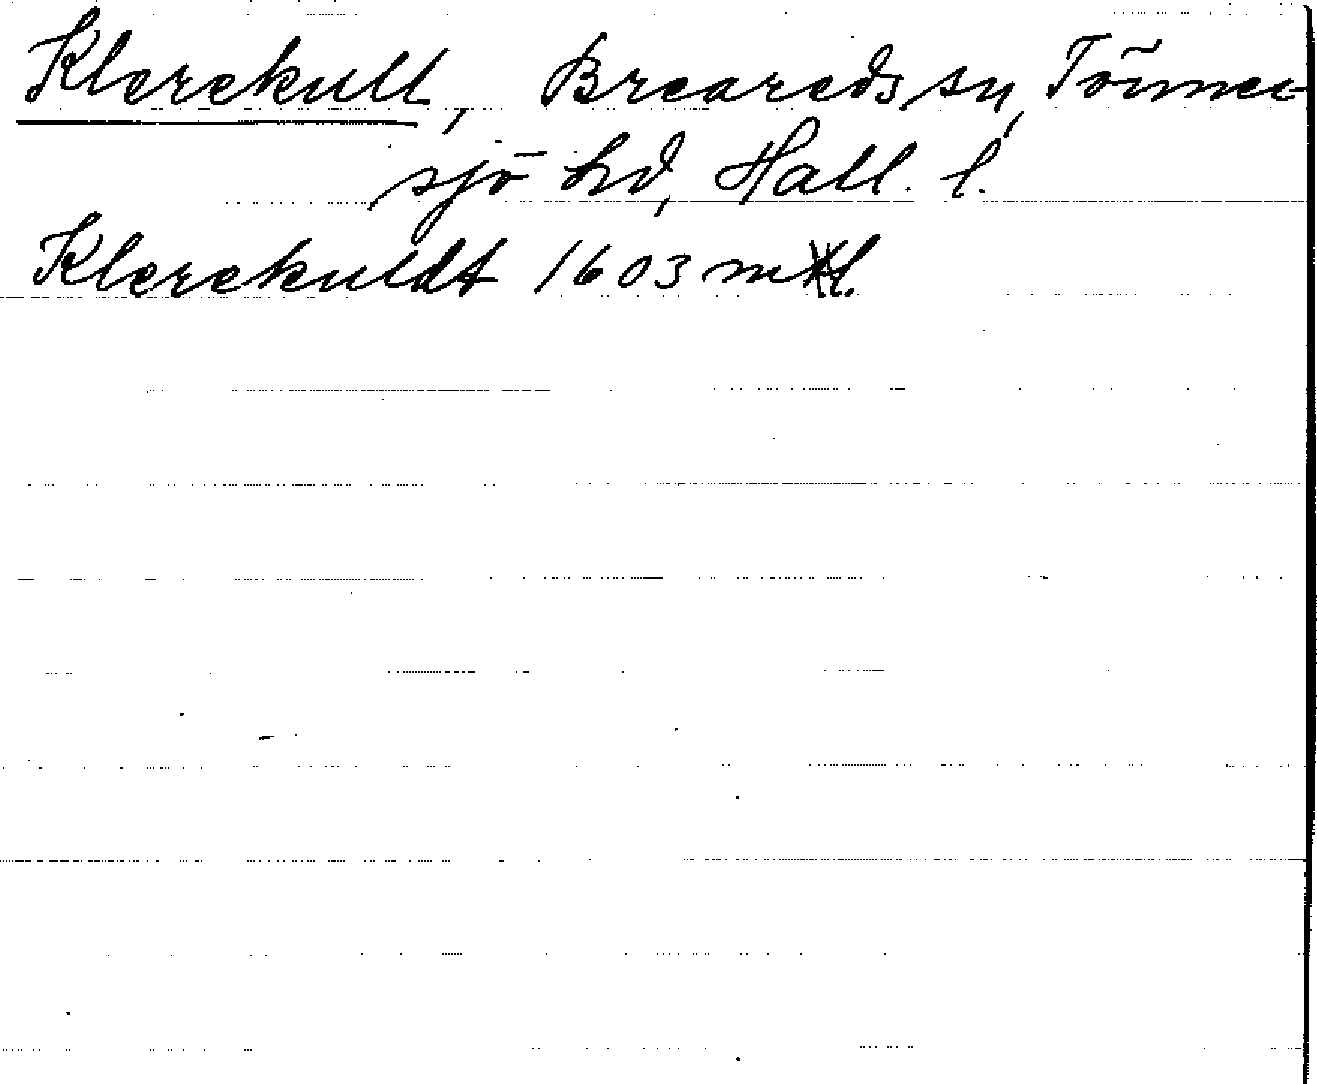 Klerekull, Breareds sn, Tönner-
sjö hd, Hall. l.
Klerekuldt 1603 mtl.